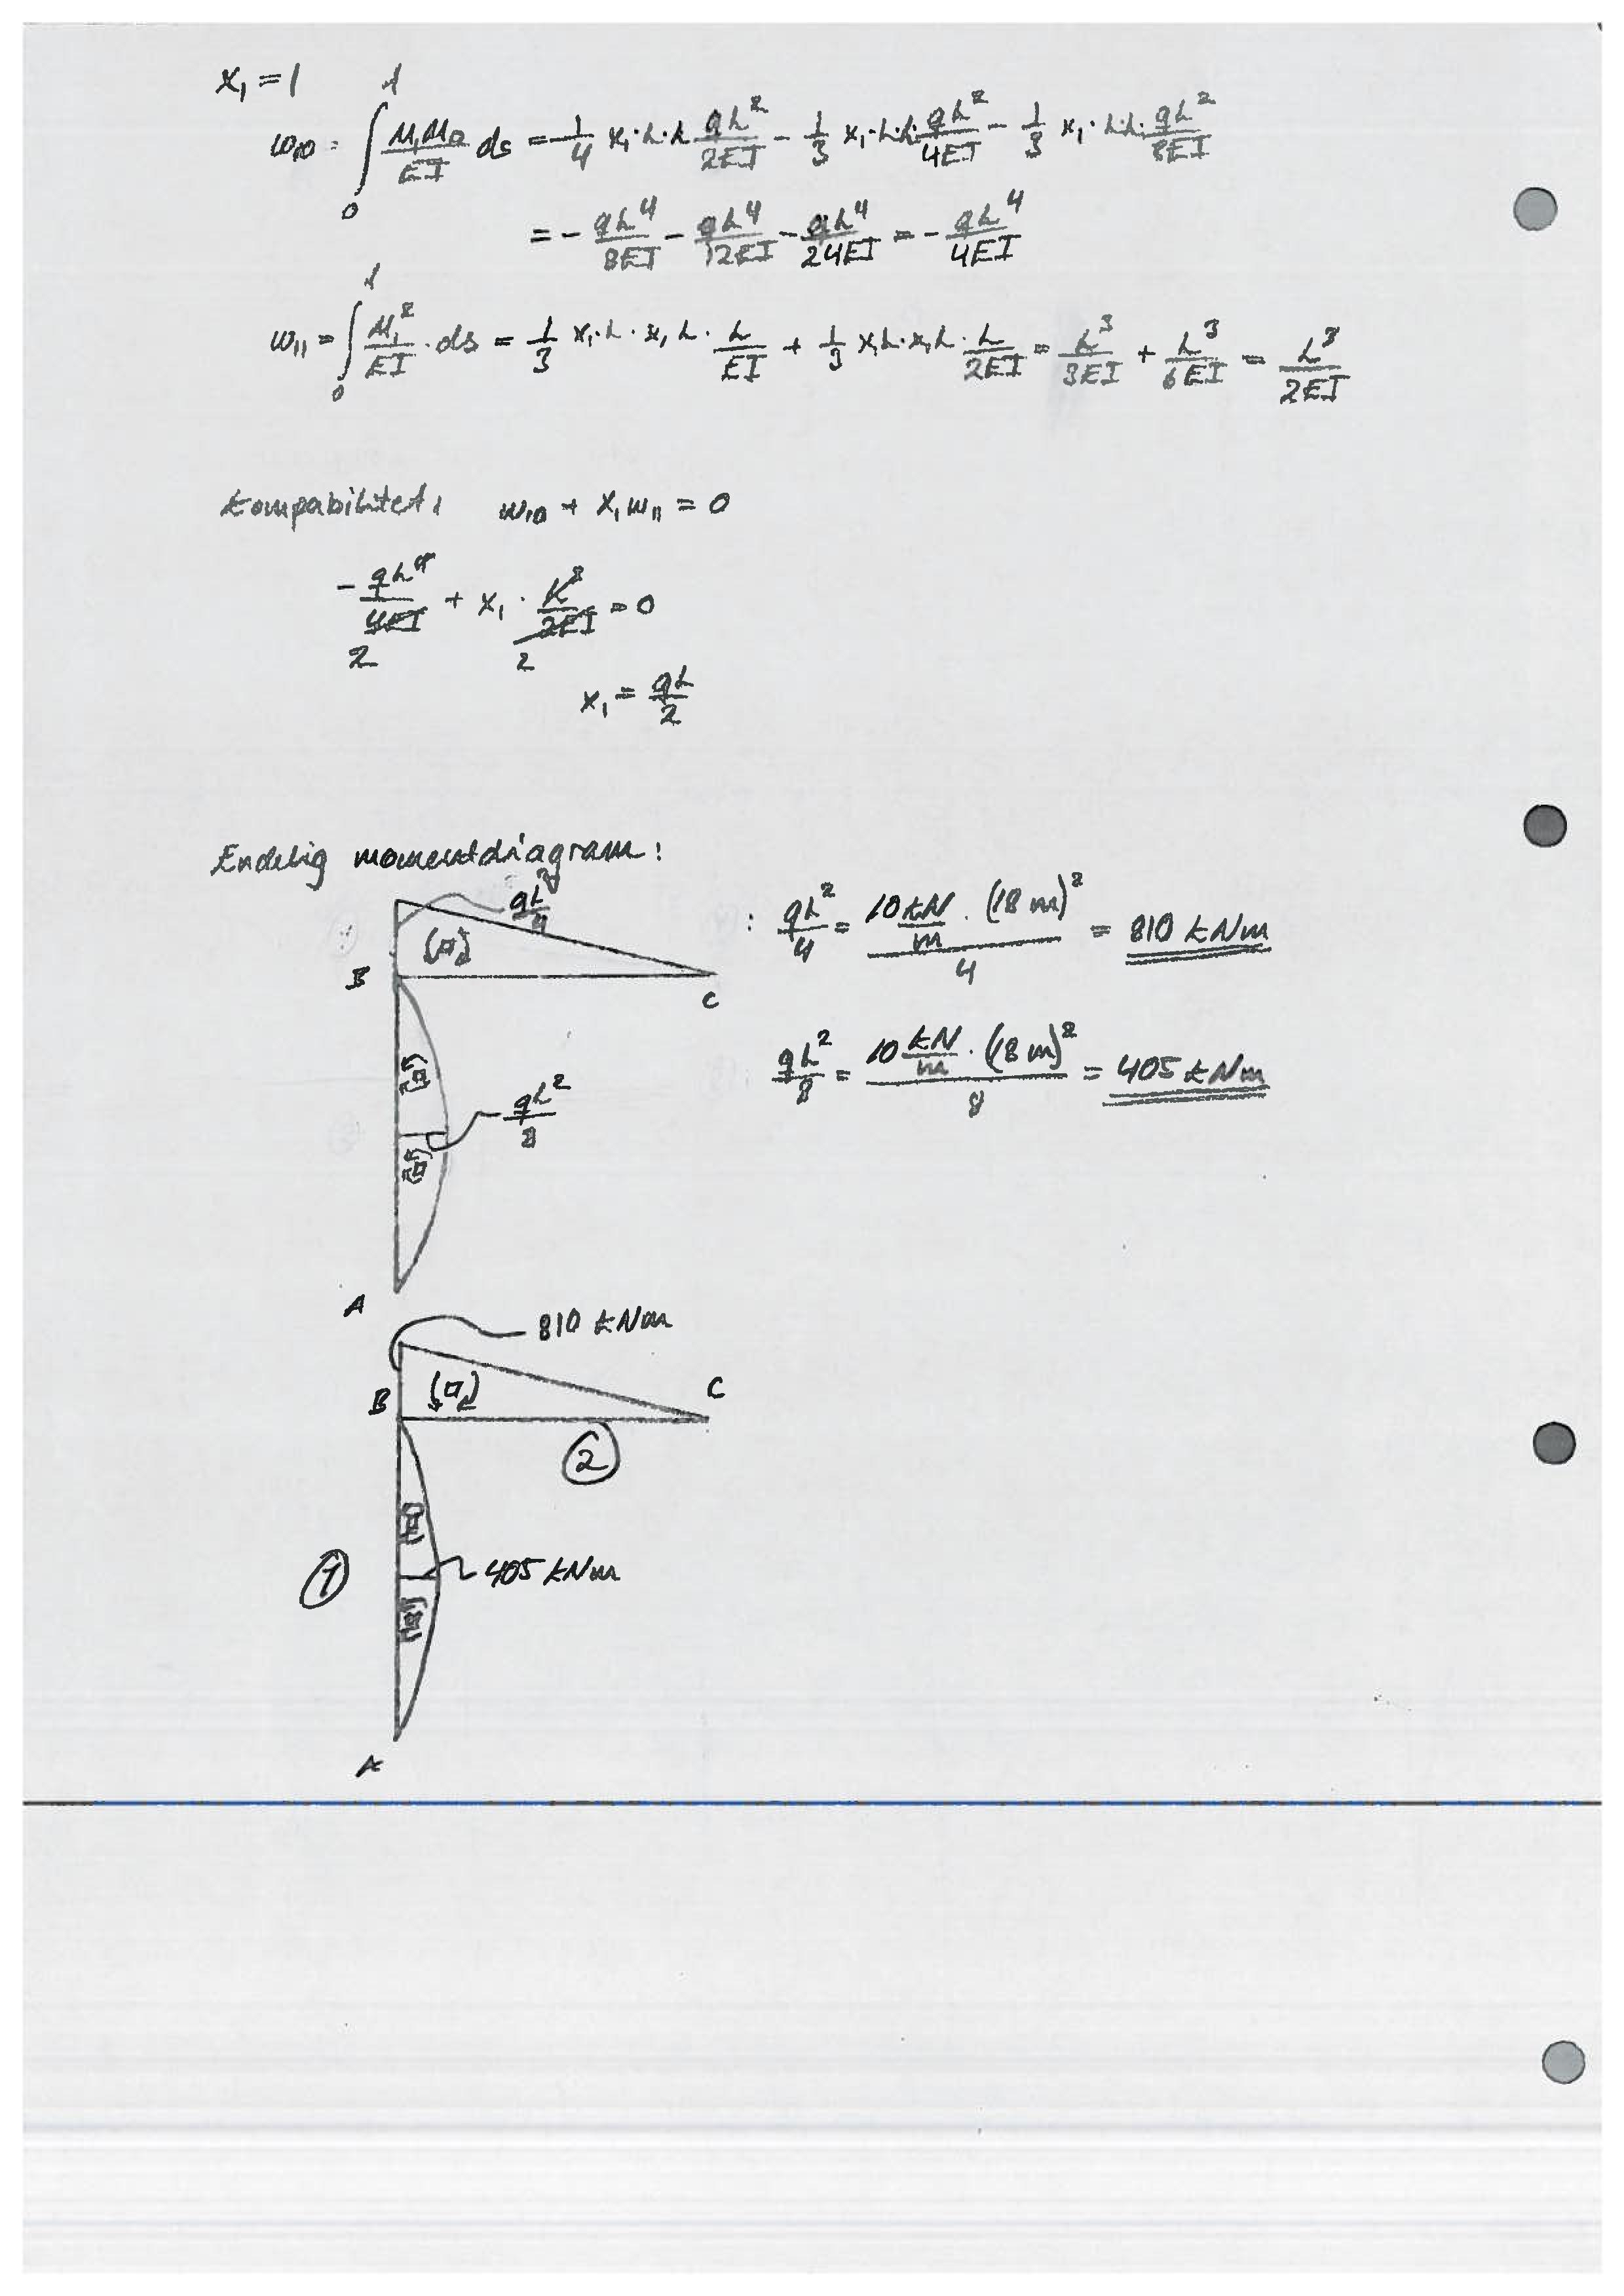 x₁ = 1
w₁₀ = ∫₀ˡ M₁M₀/EI ds = -1/4 x₁·L·L qL²/2EI - 1/3 x₁·L·L·qL²/4EI - 1/3 x₁·L·L·qL²/8EI
= - qL⁴/8EI - qL⁴/12EI - qL⁴/24EI = - qL⁴/4EI
w₁₁ = ∫₀ˡ M₁²/EI · ds = 1/3 x₁·L · x₁ L · L/EI + 1/3 x₁L·x₁L · L/2EI = L³/3EI + L³/6EI = L³/2EI
Kompabilitet: w₁₀ + x₁w₁₁ = 0
- qL⁴/4EI + x₁ · L³/2EI = 0
2 2
x₁ = qL/2
Endelig momentdiagram:
qL²/4
: qL²/4 = 10 kN/m · (18 m)²/4 = 810 kNm
B
C
qL²/8 = 10 kN/m · (18 m)²/8 = 405 kNm
qL²/8
A
810 kNm
B
C
2
1
405 kNm
A